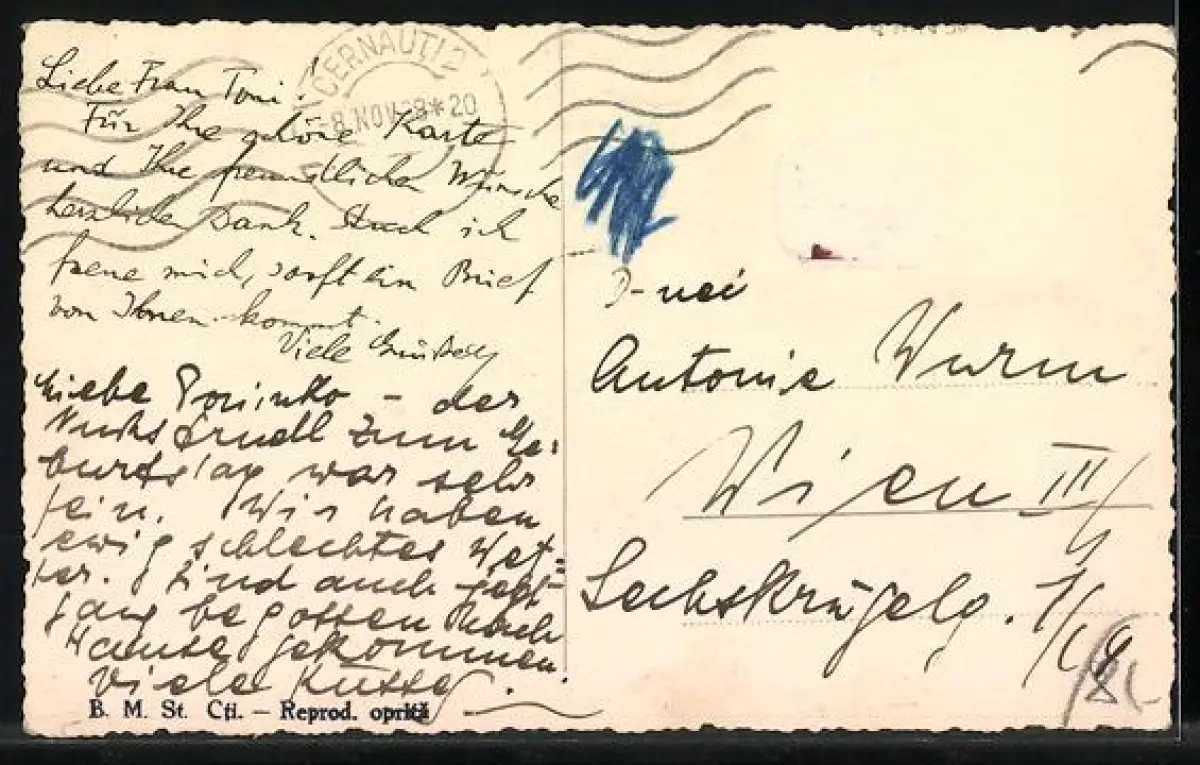 CERNAUTI 2
8 NOV 38*20
Liebe Frau Toni!
Für Ihre schöne Karte
und Ihre freundlichen Wünsche
herzlichen Dank. Auch ich
freue mich, so oft ein Brief
von Ihnen kommt.
Viele Grüße
Liebe – der
Nußstrudl zum Ge-
burtstag war sehr
fein. Wir haben
ewig schlechtes Wet=
ter. Sind auch
begossen nach
Hause gekommen.
Viele Küsse
B. M. St. Cti. – Reprod. oprită
D-nei
Antonie Wurm
Wien III/
Sechskrügelg. 1/18